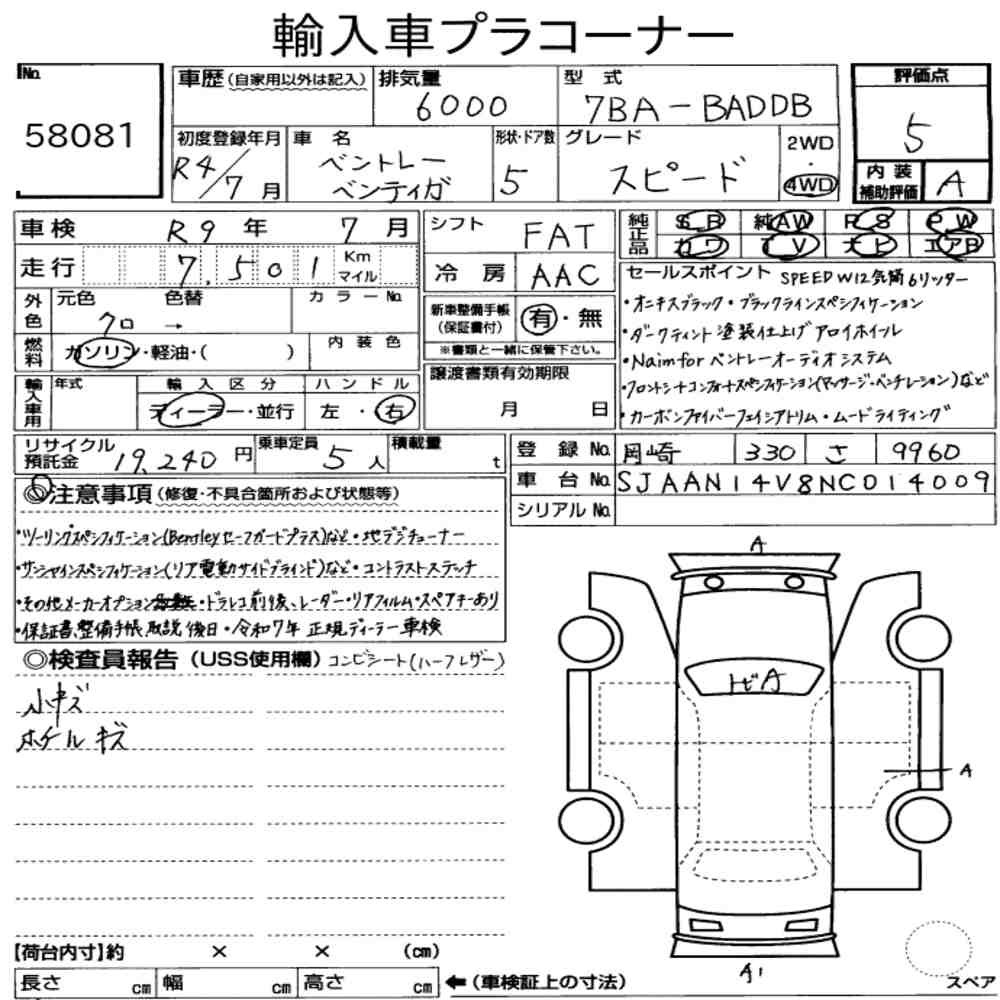 輸入車プラコーナー
No. 58081
車歴 (自家用以外は記入) 排気量 6000 型式 7BA-BADDB
評価点 5
初度登録年月 R4/7月 車名 ベントレー ベンテイガ 形状・ドア数 5 グレード スピード 2WD・4WD
内装補助評価 A
車検 R9年 7月
走行 7,501 Km マイル
外色 元色 色替 カラーNo.
クロ →
燃料 ガソリン・軽油・( ) 内装色
輸入車用 年式 輸入区分 ハンドル
ディーラー・並行 左・右
シフト FAT
冷房 AAC
新車整備手帳(保証書付) 有・無
※書類と一緒に保管下さい。
譲渡書類有効期限
月 日
純正品 S R 純AW P S P W
カワ T V ナビ エアB
セールスポイント SPEED W12気筒6リッター
・オニキスブラック・ブラックラインスペシフィケーション
・ダークティント塗装仕上げアロイホイール
・Naim for ベントレーオーディオシステム
・フロントシートコンフォートスペシフィケーション(マッサージ・ベンチレーション)など
・カーボンファイバーフェイシアトリム・ムードライティング
リサイクル預託金 19,240円 乗車定員 5人 積載量 t
登録No. 岡崎 330 さ 9960
車台No. SJAAN14V8NC014009
シリアルNo.
◎注意事項 (修復・不具合箇所および状態等)
・ツーリングスペシフィケーション(Bentleyセーフガードプラス)など・地デジチューナー
・サンシャインスペシフィケーション(リア電動サイドブラインド)など・コントラストステッチ
・その他メーカーオプション・ドラレコ前後、レーダー・リアフィルム・スペアキーあり
・保証書、整備手帳、取説 後日・令和7年 正規ディーラー車検
◎検査員報告 (USS使用欄) コンビシート(ハーフレザー)
小キズ
ホイールキズ
A
トビA
A
A1
スペア
【荷台内寸】約 × × (cm)
長さ cm 幅 cm 高さ cm ←(車検証上の寸法)